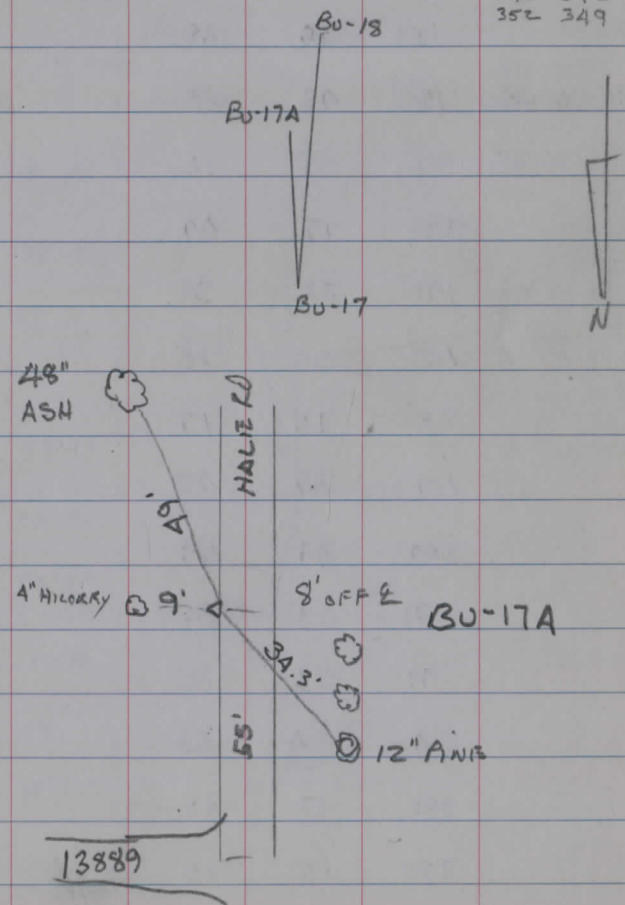 352 349
BU-18
BU-17A
BU-17
N
48"
ASH
HALIE RD
49'
4" HICORRY 9' 8' OFF ℄
BU-17A
34.3'
55'
12" PINE
13889